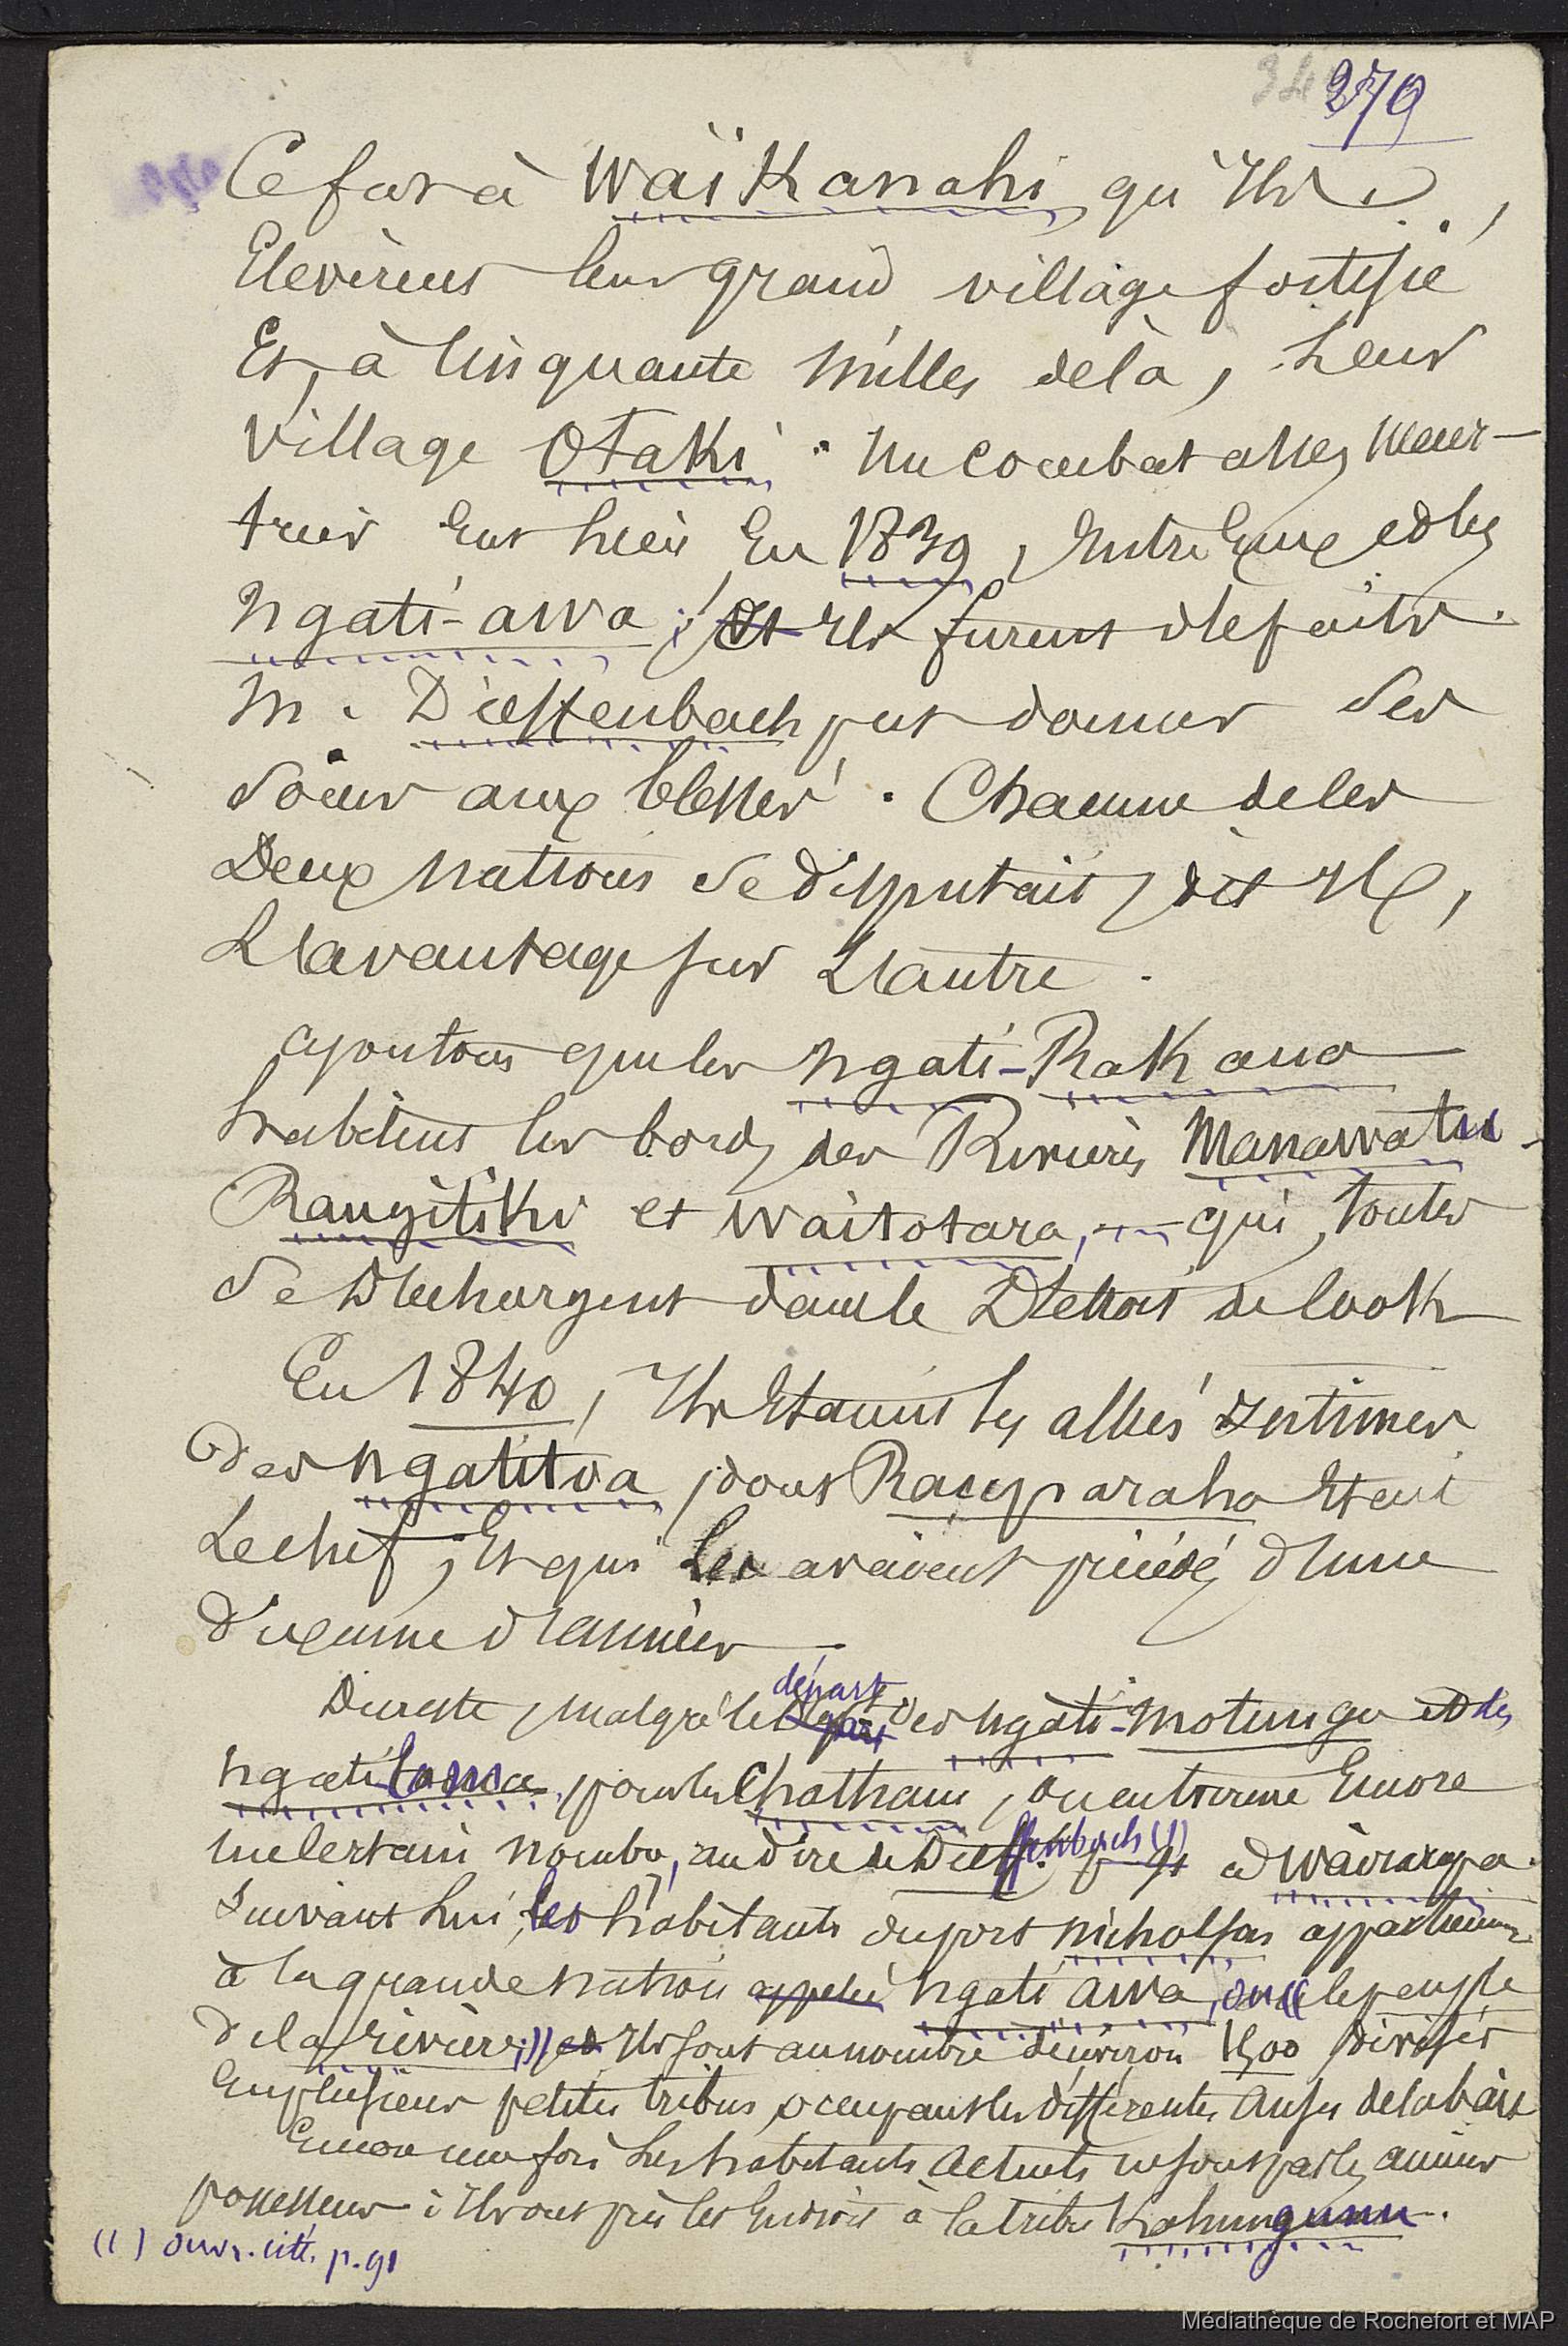 279
Ce fut à Waïkanahi qu'ils
Elevèrent leur grand village fortifié
Et, à cinquante milles delà, Leur
village Otaki. Un combat assez meur-
trier eut lieu En 1839, Entre Eux et les
Ngati-awa ; Et ils furent defaits.
M. Dieffenbach put donner ses
soins aux blessés. Chacune de ces
Deux nations se disputait, dit Il,
L'avantage sur L'autre.
ajoutons que les Ngati-Rakaua
habitent les bords des Rivières Manawatu
Rangitiki et Waitotara, qui, toutes
se Déchargent dans le Détroit de Cook
En 1840, Ils Etaient les alliés Intimes
des Ngatitoa, dont Rauparaha Etait
Le chef, Et qui les avaient précédé d'une
dixaine d'années.
Du reste, malgré le départ des Ngati-Motunga et des
Ngatitama, pour les Chatham, on en trouve Encore
un certain nombre, au dire de Dieffenbach (1) à Wairarapa.
Suivant lui, les habitants du port Nicholson appartiennent
à la grande nation appelée Ngati awa, ou « le peuple
de la rivière ; » et Ils sont au nombre d'environ 1500 divisés
En plusieurs petites tribus, occupant les différentes anses de la baie
Encore une fois les habitants actuels ne sont pas les anciens
possesseurs : Ils ont pris les Endroits à la tribu Kahungunu.
(1) ouvr. cité. p. 91
Médiathèque de Rochefort et MAP